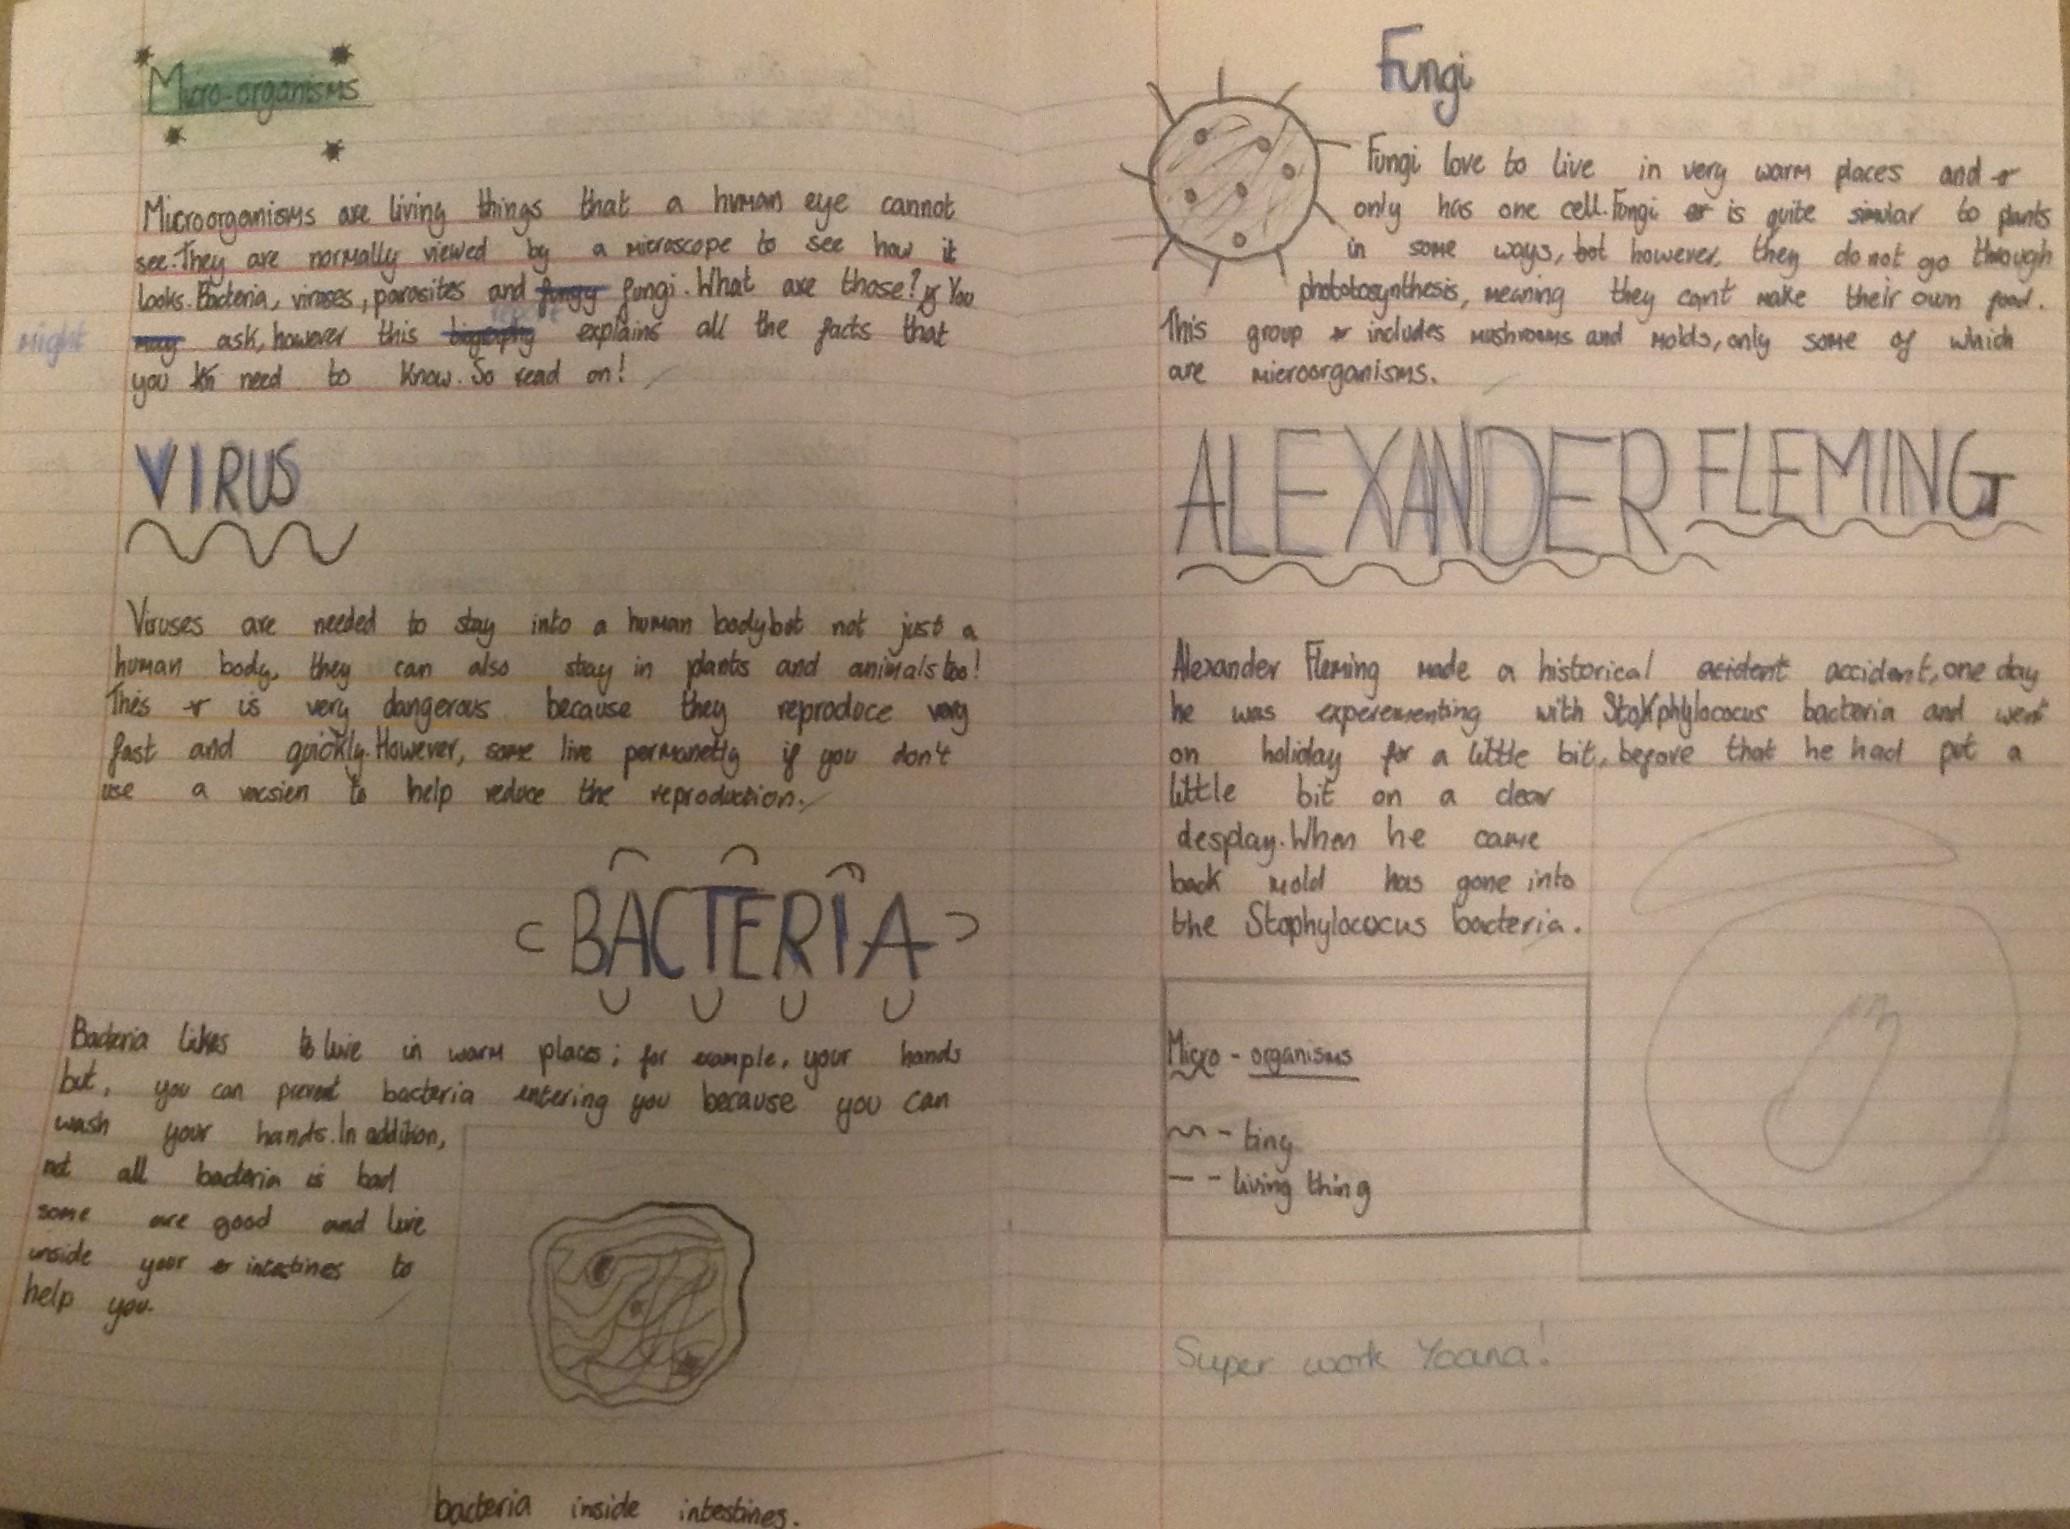 Micro-organisms
Microorganisms are living things that a human eye cannot
see. They are normally viewed by a microscope to see how it
looks. Bacteria, viruses, parasites and fungy fungi. What are those? You
might
may ask, however this biography report explains all the facts that
you need to know. So read on!
VIRUS
Viruses are needed to stay into a human body but not just a
human body, they can also stay in plants and animals too!
This is very dangerous because they reproduce very
fast and quickly. However, some live permanetly if you don't
use a vacsien to help reduce the reproduction.
BACTERIA
Bacteria likes to live in warm places; for example, your hands
but, you can prevent bacteria entering you because you can
wash your hands. In addition,
not all bacteria is bad
some are good and live
inside your intestines to
help you.
bacteria inside intestines.
Fungi
Fungi love to live in very warm places and
only has one cell. Fungi is quite similar to plants
in some ways, but however, they do not go through
phototosynthesis, meaning they cant make their own food.
This group includes mushrooms and molds, only some of which
are microorganisms.
ALEXANDER FLEMING
Alexander Fleming made a historical acident accident, one day
he was experementing with Staphylococus bacteria and went
on holiday for a little bit, before that he had put a
little bit on a clear
desplay. When he came
back mold has gone into
the Staphylococus bacteria.
Micro - organisms
- tiny
- living thing
Super work Yoana!